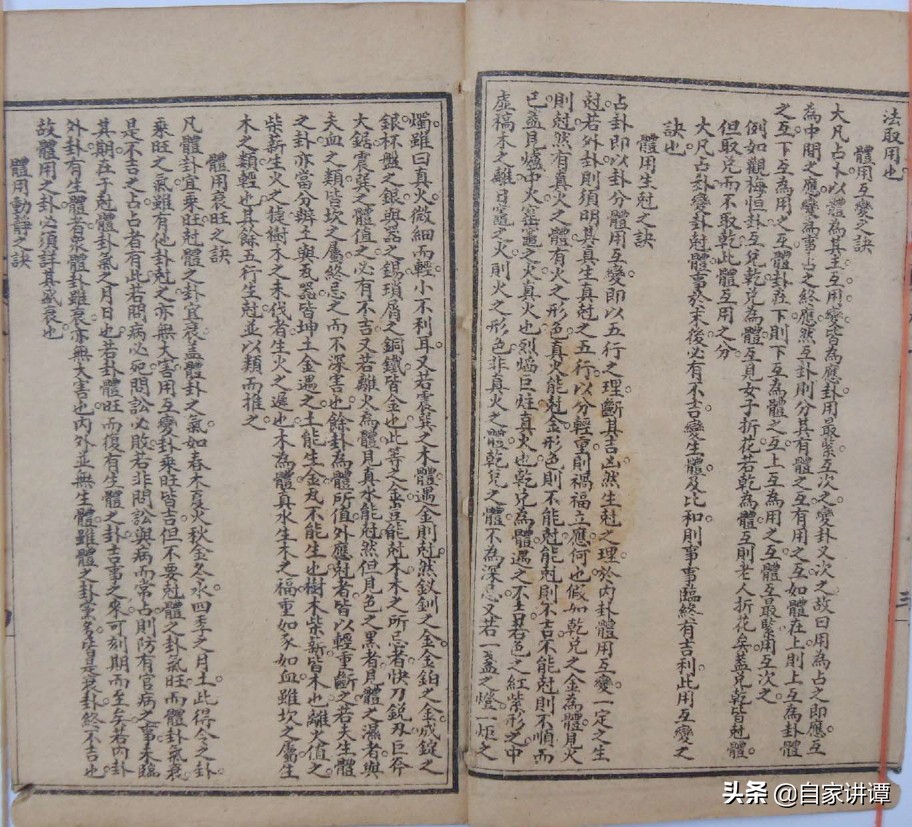 法取用也
體用互變之訣
大凡占卜以體為其主互用變皆為應卦用最緊互次之變卦又次之故曰用為占之即應互
為中間之應變為事占之終應然互卦則分其有體之互有用之互如體在上則上互為卦體
之互下互為用之互體卦在下則下互為體之互上互為用之互體互最緊用互次之
例如觀梅恒卦互兌乾兌為體互見女子折花若乾為體互則老人折花矣蓋兌乾皆尅體
但取兌而不取乾此體互用之分
大凡占卦變卦尅體事於末後必有不吉變生體及比和則事事臨終有吉利此用互變之
訣也
體用生尅之訣
占卦即以卦分體用互變即以五行之理斷其吉凶然生尅之理於內卦體用互變一定之生
尅若外卦則須明其真生真尅之五行以分輕重則禍福立應何也假如乾兌之金為體見火
則尅然有真火之體有火之形色真火能尅金形色則不能尅能尅則不吉不能尅則不順而
已蓋見爐中火窰竈之火真火也烈焰巨炷真火也乾兌為體遇之不吉若色之紅紫形之中
虛槁木之離日竈之火則火之形色非真火之體乾兌之體不為深忌又若一盞之燈一炬之
燭雖曰真火微細而輕小不利耳又若震巽之木體遇金則尅然釵釧之金金鉑之金成錠之
銀杯盤之銀與器之錫瑣屑之銅鐵皆金也此等之金豈能尅木木之所忌者快刀銳刃巨斧
大鋸震巽之體值之必有不吉又若離火為體見真水能尅然但見色之黑者見體之濕者與
夫血之類皆坎之屬終忌之而不深害也餘卦為體所值外應尅者皆以輕重斷之若夫生體
之卦亦當分辨土與瓦器皆坤土金遇之土能生金瓦不能生也樹木柴薪皆木也離火值之
柴薪生火之捷樹木之未伐者生火之遲也木為體真水生木之福重如豕如血雖坎之屬生
木之類輕也其餘五行生尅並以類而推之
體用衰旺之訣
凡體卦宜乘旺尅體之卦宜衰蓋體卦之氣如春木夏火秋金冬水四季之月土此得令之卦
乘旺之氣雖有他卦尅之亦無大害用互變卦乘旺皆吉但不要尅體之卦氣旺而體卦氣衰
是不吉之占占者有此若問病必死問訟必敗若非問訟與病而常占則防有官病之事未臨
其期在于尅體卦氣之月日也若卦體旺而復有生體之卦吉事之來可刻期而至矣若內卦
外卦有生體者眾體卦雖衰亦無大害也內外並無生體雖體之卦黨多皆是衰卦終不吉也
故體用之卦必須詳其氣衰也
體用動靜之訣
三
头条 @自家讲谭